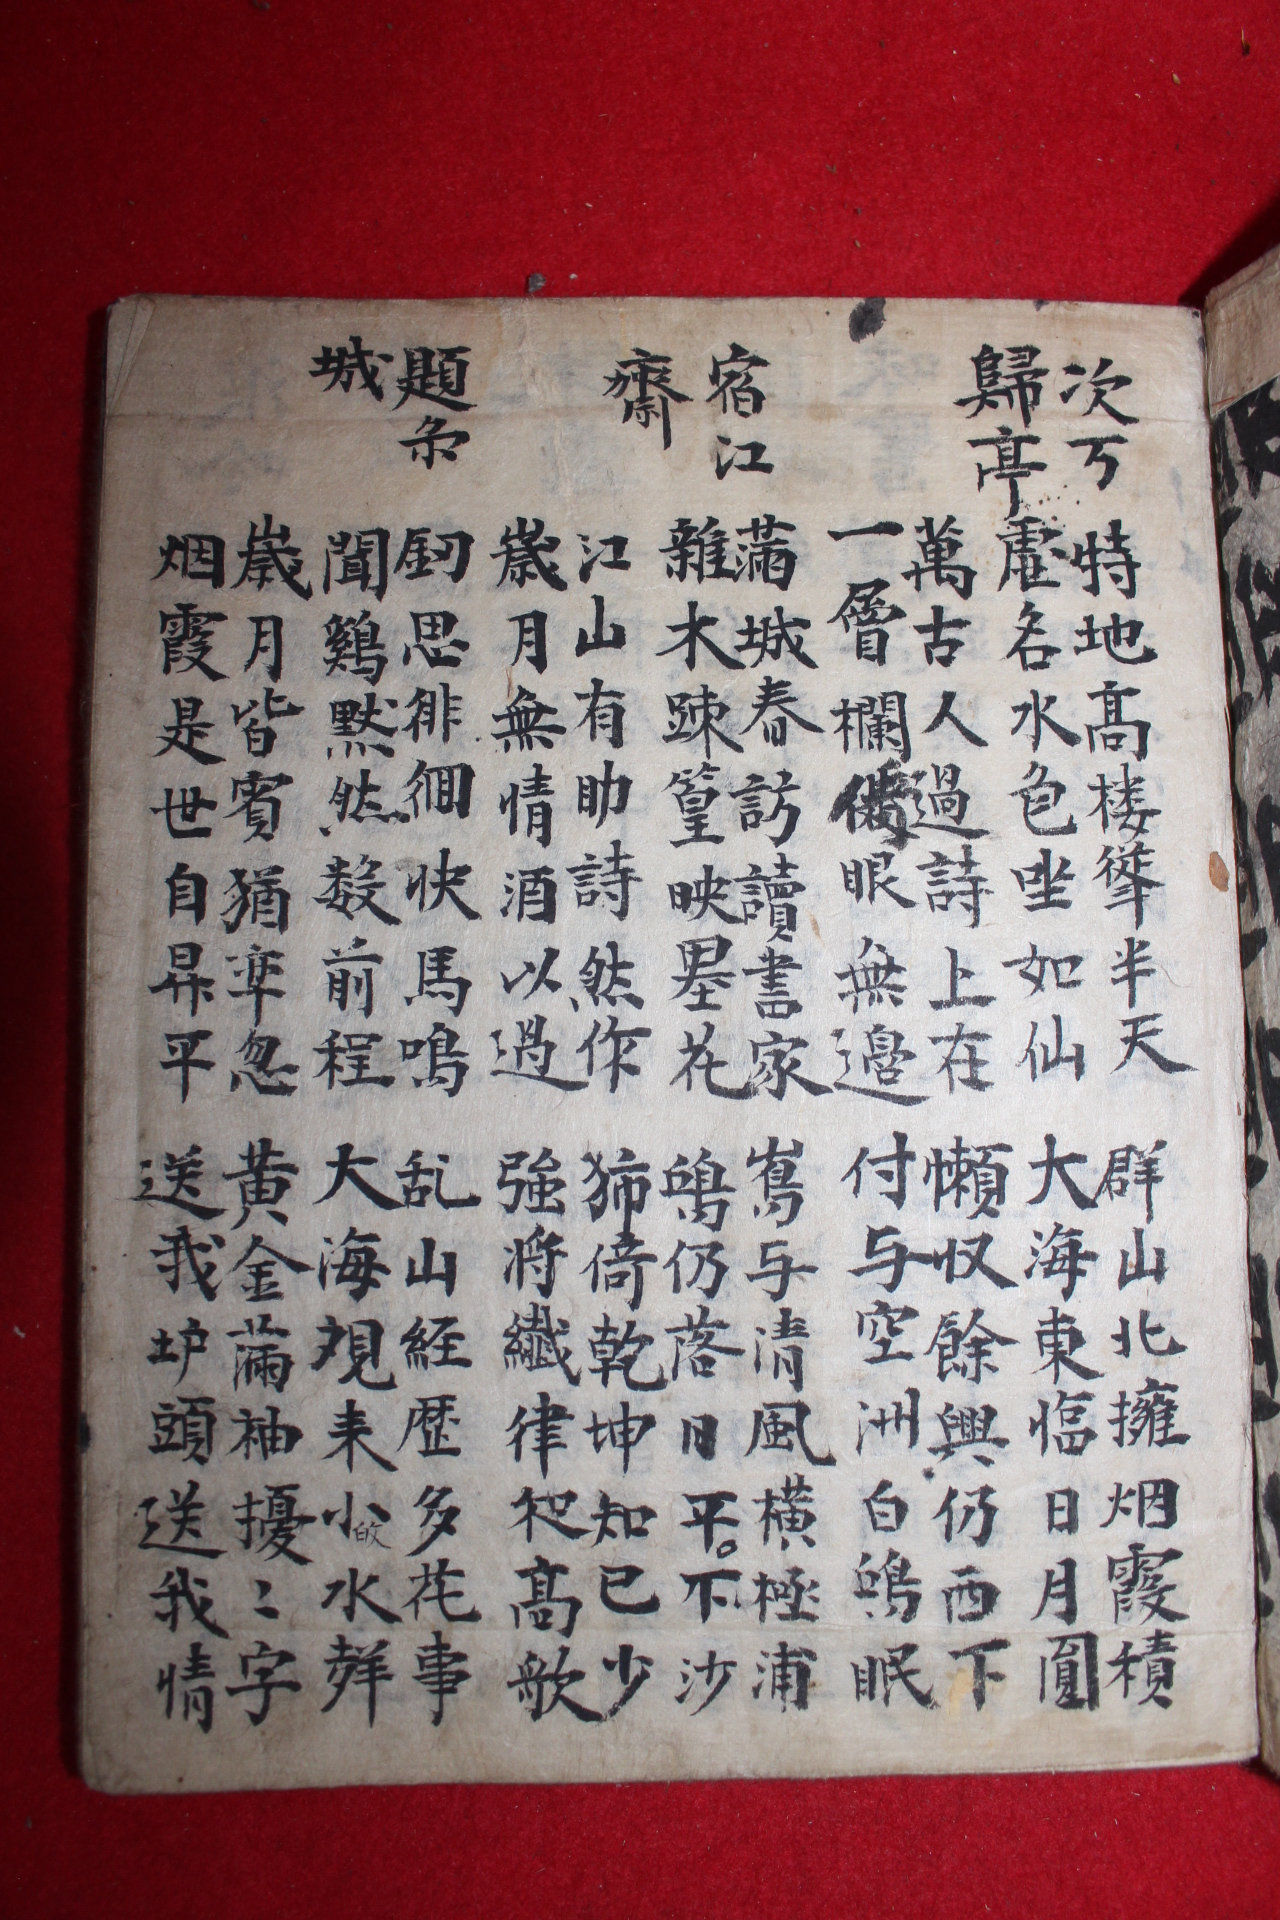 次丂
歸亭
特地高楼聳半天 群山北擁烟霞積
虗名水色坐如仙 大海東臨日月圓
萬古人過詩上在 懶収餘興仍西下
一層欄 眼無邊 付与空洲白鷗眠
宿江
齋
滿城春訪讀書家 嵩与清風橫極浦
雜木踈篁映墨花 鴭仍落日平。下沙
江山有助詩然作 獨倚乾坤知已少
歲月無情酒以過 強將纖律和高歌
題
城
釼思徘徊快馬鳴 乱山経歷多花事
聞鷄黙然数前程 大海觀來小水聲
歲月皆賓猶卒忽 黃金滿袖擾〻字
烟霞是世自昇平 送我垆頭送我情